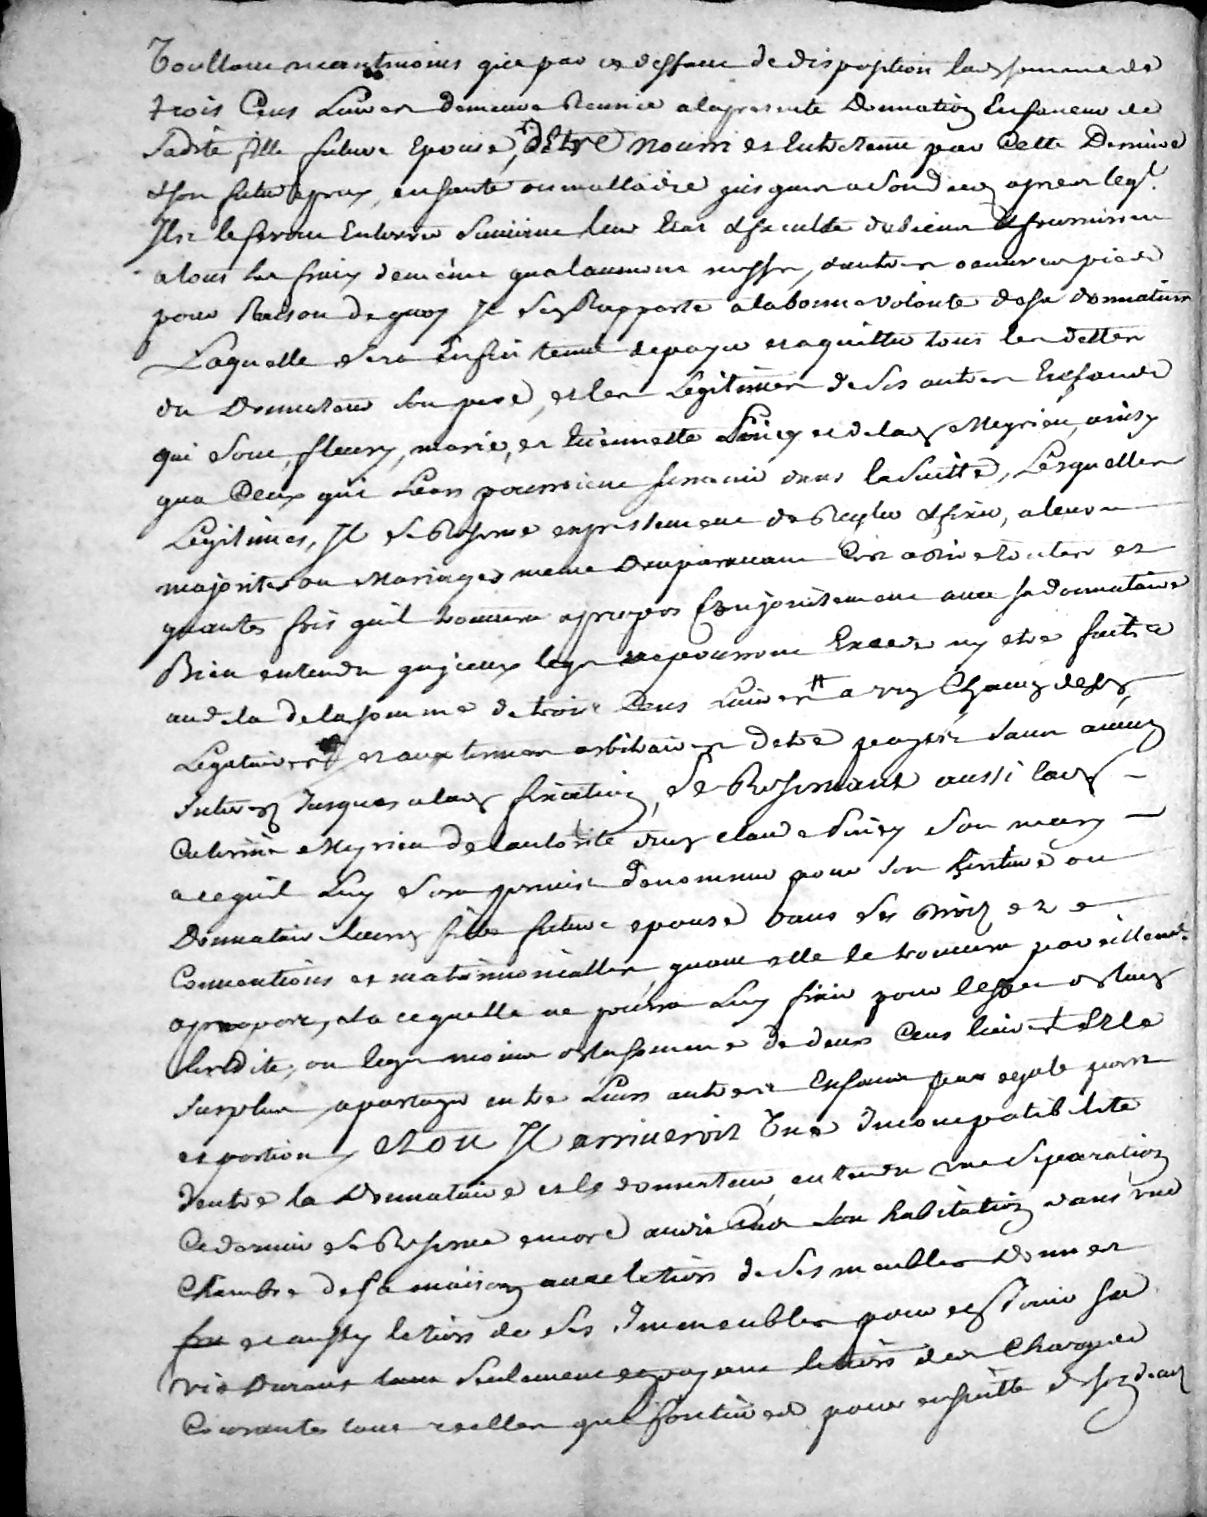 Voullant neantmoins que par ce deffaut de disposition lad somme de
trois Cens Livres demeure Reunie a la presente Donnation En faveur de
Sadite fille future Epouse, d'Etre nourri et Entretenu par Cette Derniere
et son futur epoux, en santé ou malladie jusques a son deces apres leql.
Ils le feront Enterrer suivant leur Etat et faculté du sieur et fourniront
a tous les fraix de meme qua laumone messes, dautres oeuvres pies
pour Raison de quoy Il sen Rapporte a la bonne volonté de sa donnataire
Laquelle sera Enfin tenue de payer et aquitter tous les dettes
du Donnateur son pere, et les Legitimes de ses autres Enfants
qui sont, fleury, marie, et Etiennette et de lad Meyrieu, ainsy
qua Ceux qui Leur pourroient survenir dans la Suitte, Lesquelles
Legitimes, Il se Reserve expressement de Regler et fixer, a leur
majorités ou Mariages meme Dauparavant Cest a dire toutes et
quantes fois quil trouvera apropos Conjointement avec sa donnataire
Bien entendu qu'iceux legs ne pourront Exceder ny etre faits
au dela de la somme de trois Cens Livres a un Chacun desd
Legitaires et aux termes arbitraires detre payés sans aucun
Interest Jusques alad fixation, Se Reservant aussi lad
Caterine Meyrieu de lautorité dud claude son mary
a ce quil Luy soit permis denommer pour son heritiere ou
Donnataire lad fille future epouse dans ses droits et
Conventions et matrimonialles, quant elle le trouvera pareillemt.
apropos, a ce quelle ne pourra Luy fixer pour
heredité, ou legs moins de la somme de deux Cens livres et le
Surplus a partager entre Leurs autres Enfans par egale part
et portion, et Ou Il arriveroit Une Incompatibilité
Dentre la Donnataire et le donnateur, entendu une Separation
Ce dernier se Reserve encore avoir son habitation dans une
Chambre de sa maison avec le tiers de ses meubles Denrées
et aussy le tiers de ses Immeubles pour en Jouir sa
vie Durant tant Seulement en payant le tiers des Charges
Courantes tant reelles que fonciere pour ensuitte